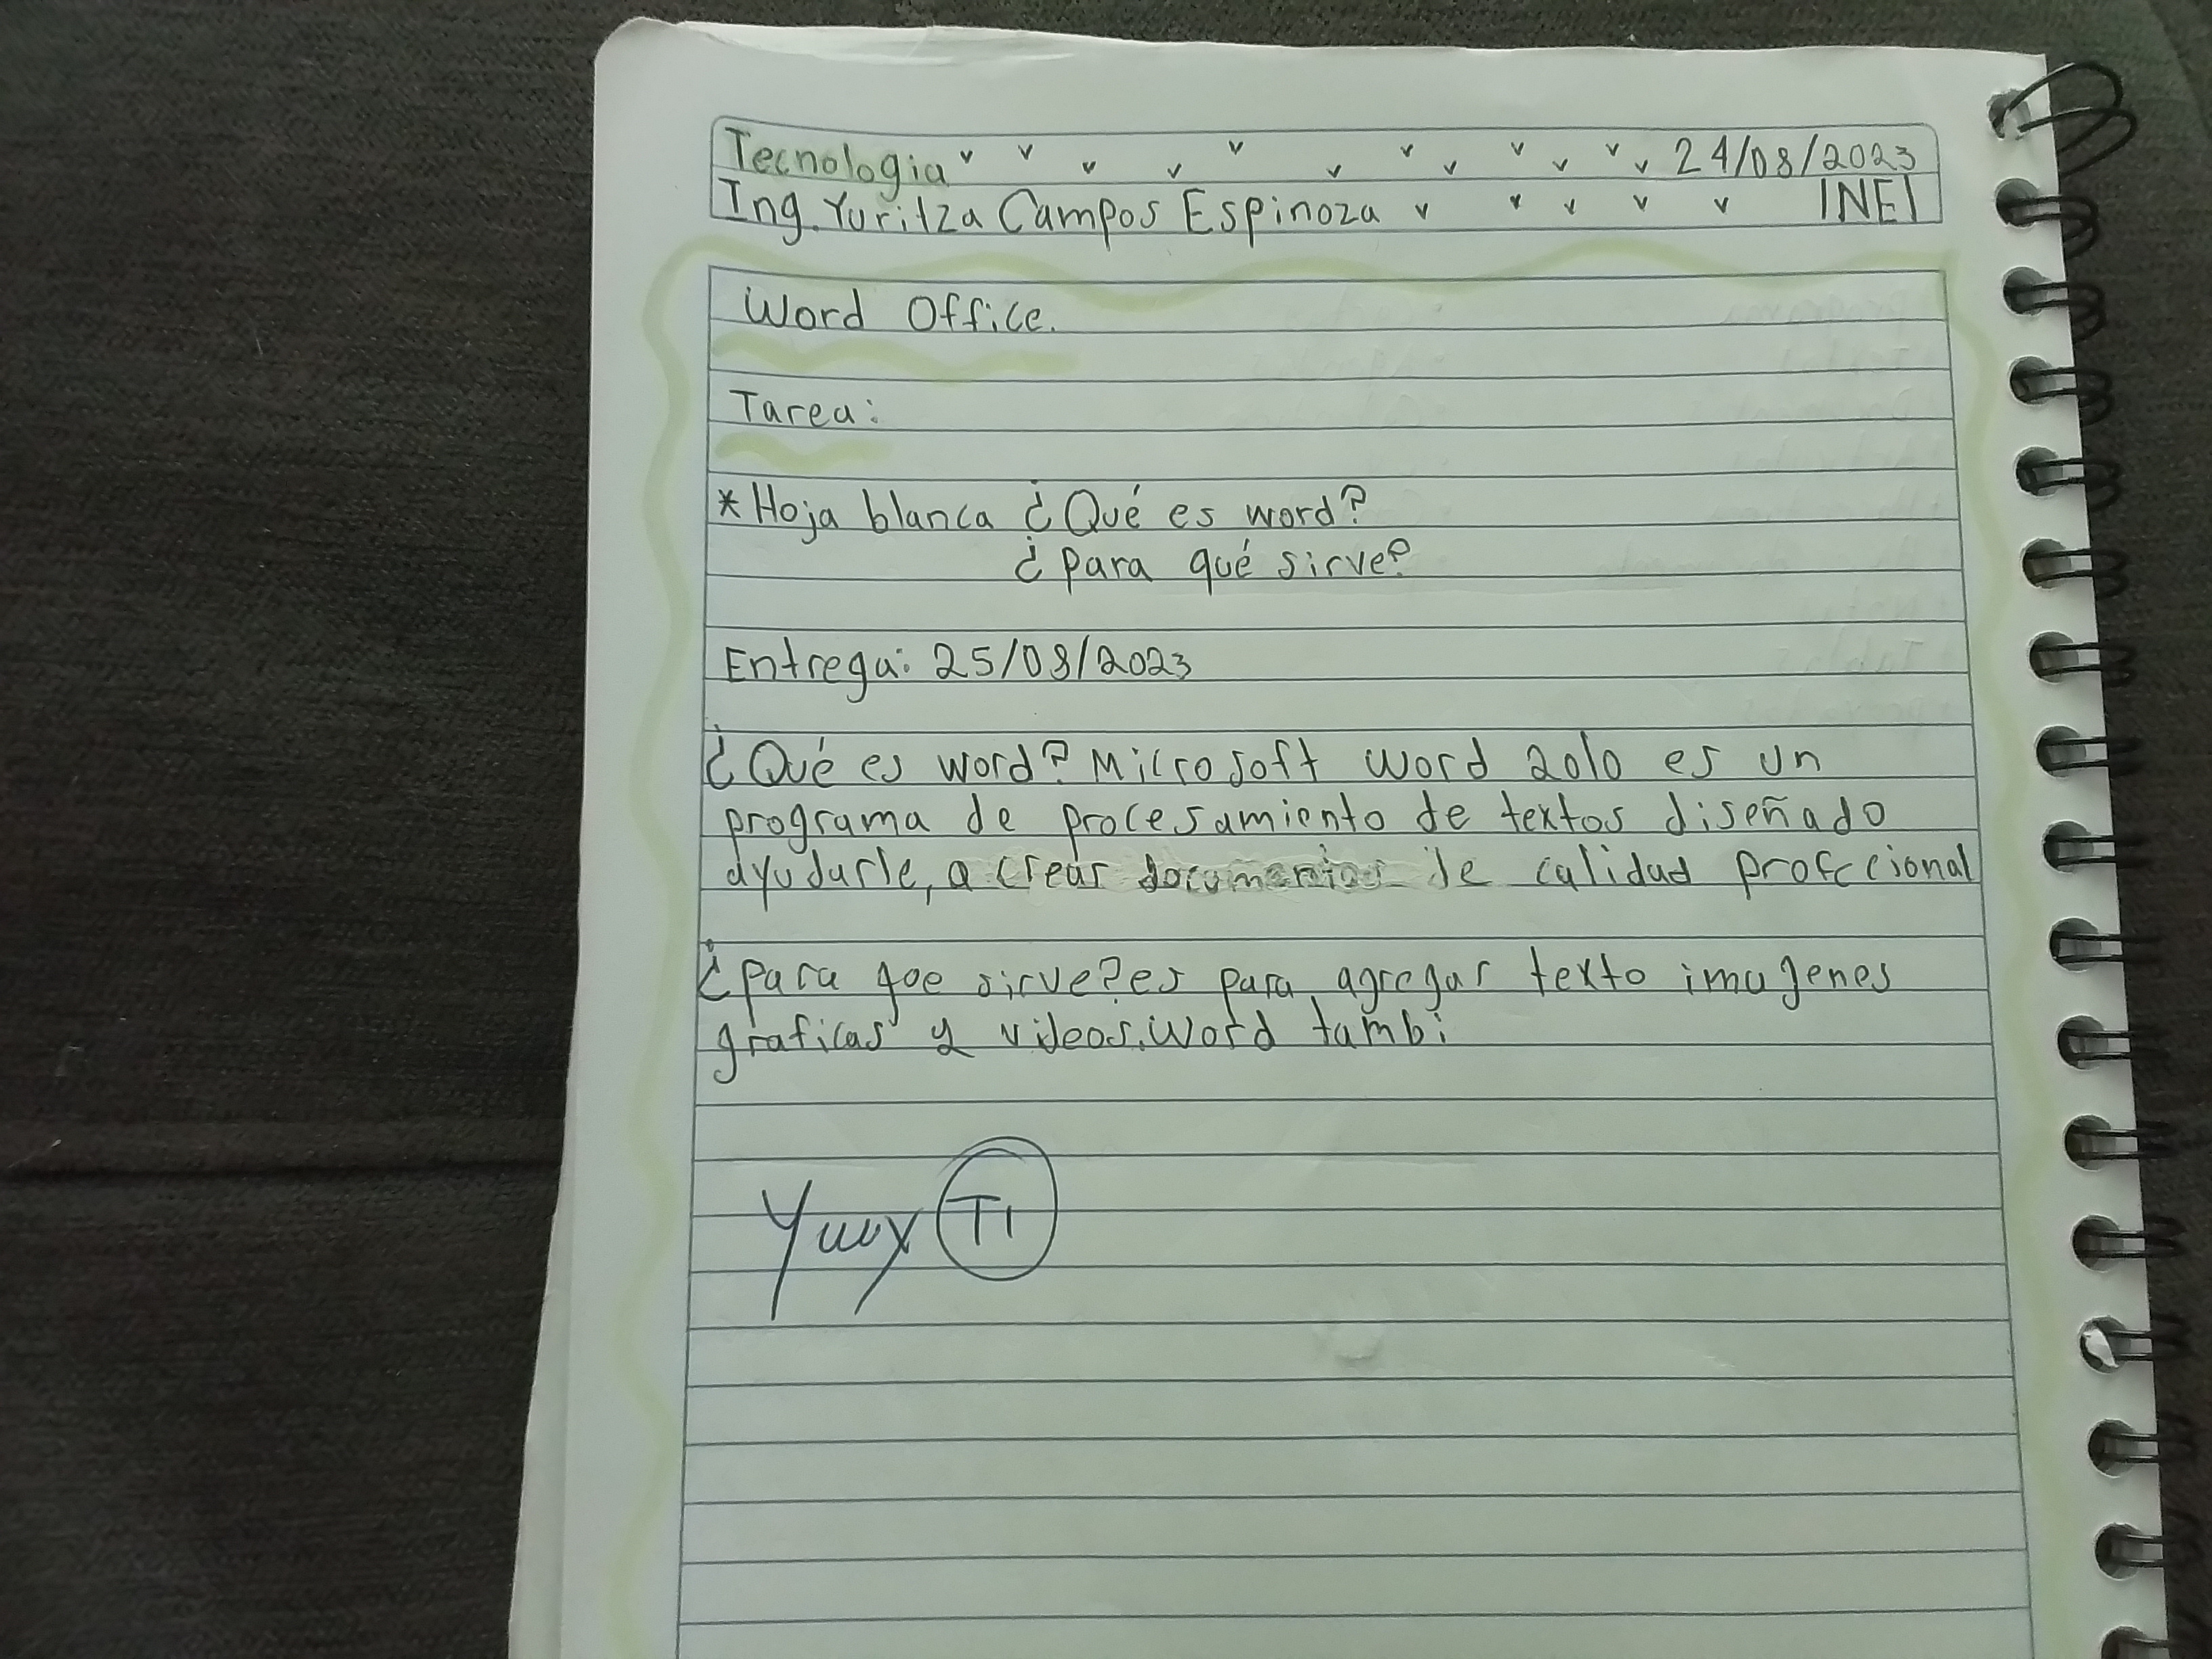 Tecnologia 24/08/2023
Ing. Yuritza Campos Espinoza INEI
Word Office.
Tarea:
*Hoja blanca ¿Qué es word?
¿para qué sirve?
Entrega: 25/08/2023
¿Qué es word? Microsoft word 2010 es un
programa de procesamiento de textos diseñado
ayudarle, a crear documentos de calidad profecional
¿para que sirve? es para agregar texto imagenes
graficas y videos. Word tambi
TI